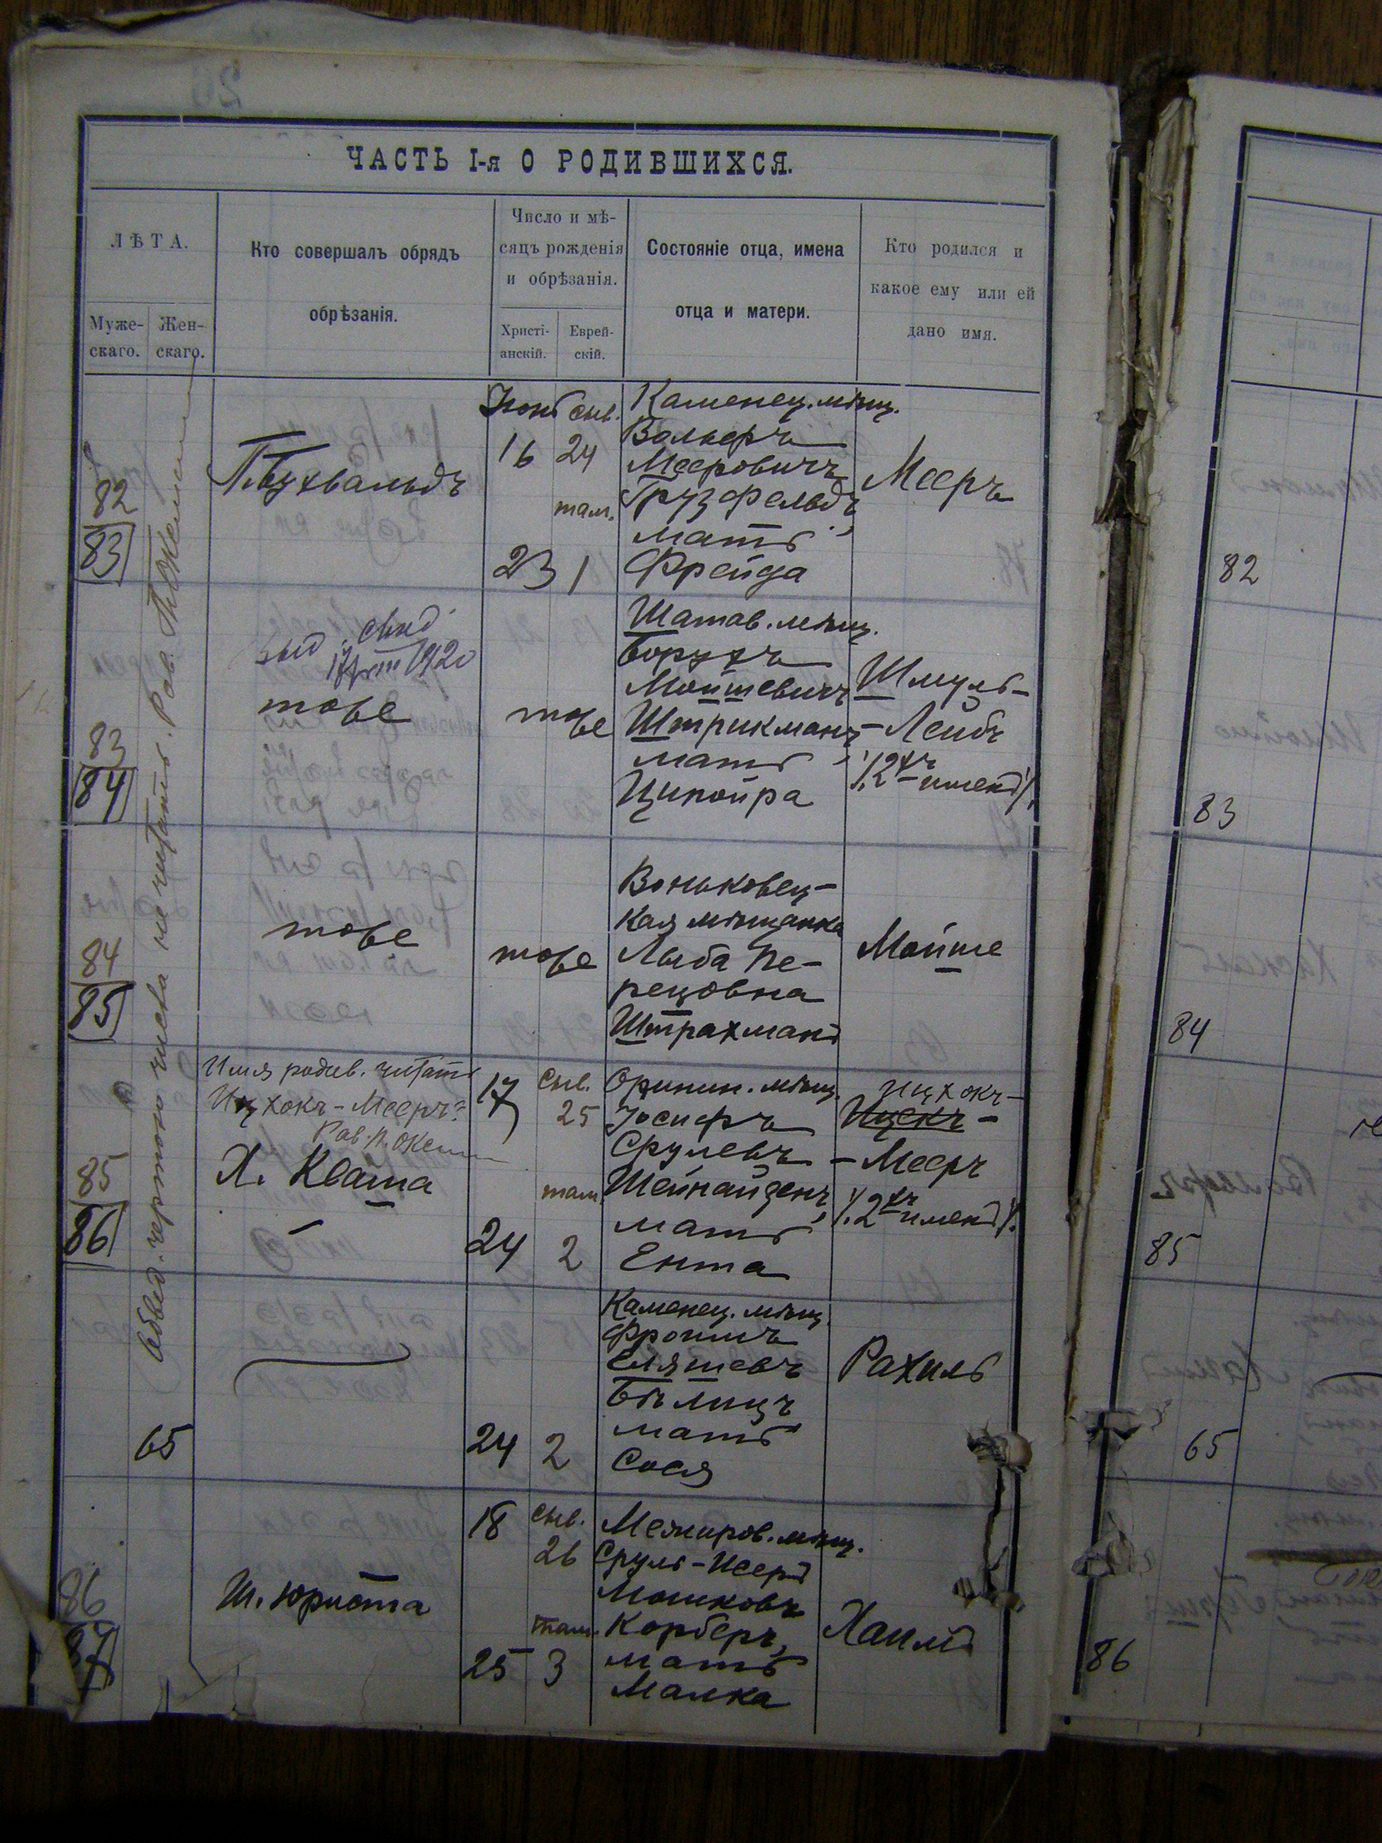 ЧАСТЬ I-я О РОДИВШИХСЯ.
ЛѢТА.
Муже-
скаго.
Жен-
скаго.
Кто совершалъ обрядъ
обрѣзанія.
Число и мѣ-
сяцъ рожденія
и обрѣзанія.
Христі-
анскій.
Еврей-
скій.
Состояніе отца, имена
отца и матери.
Кто родился и
какое ему или ей
дано имя.
82
83
П. Бухвальдъ
сив.
16 24
там.
23 1
Каменец. мѣщ.
Волько​ръ
Мееровичъ
Грузфельдъ,
мать
Фрейда
Мееръ
83
84
выд.
1920
тоже
тоже
Шатав. мѣщ.
Борухъ
Мойшевичъ
Штрикманъ,
мать
Ципойра
Шмуль-
-Лейбъ
84
85
тоже
тоже
Воньковец-
кая мѣщанка
Лыба Пе-
рецовна
Штрахманъ
Мойше
Имя родив. читать
Ицхокъ-Мееръ
85
86
Х. Кваша
17 сив.
25
там.
24 2
Оринин. мѣщ.
Іосифъ
Срулевъ
Шейнайзенъ,
мать
Ента
Ицхокъ-
Ицекъ-
-Мееръ
65
24 2
Каменец. мѣщ.
Фроимъ
Еляшевъ
Бѣлицъ
мать
Сося
Рахиль
86
87
Ш. Юриста
18 сив.
26
там.
25 3
Межиров. мѣщ.
Сруль-Исеръ
Мошковъ
Корберъ,
мать
Малка
Хаимъ
82
83
84
85
65
86